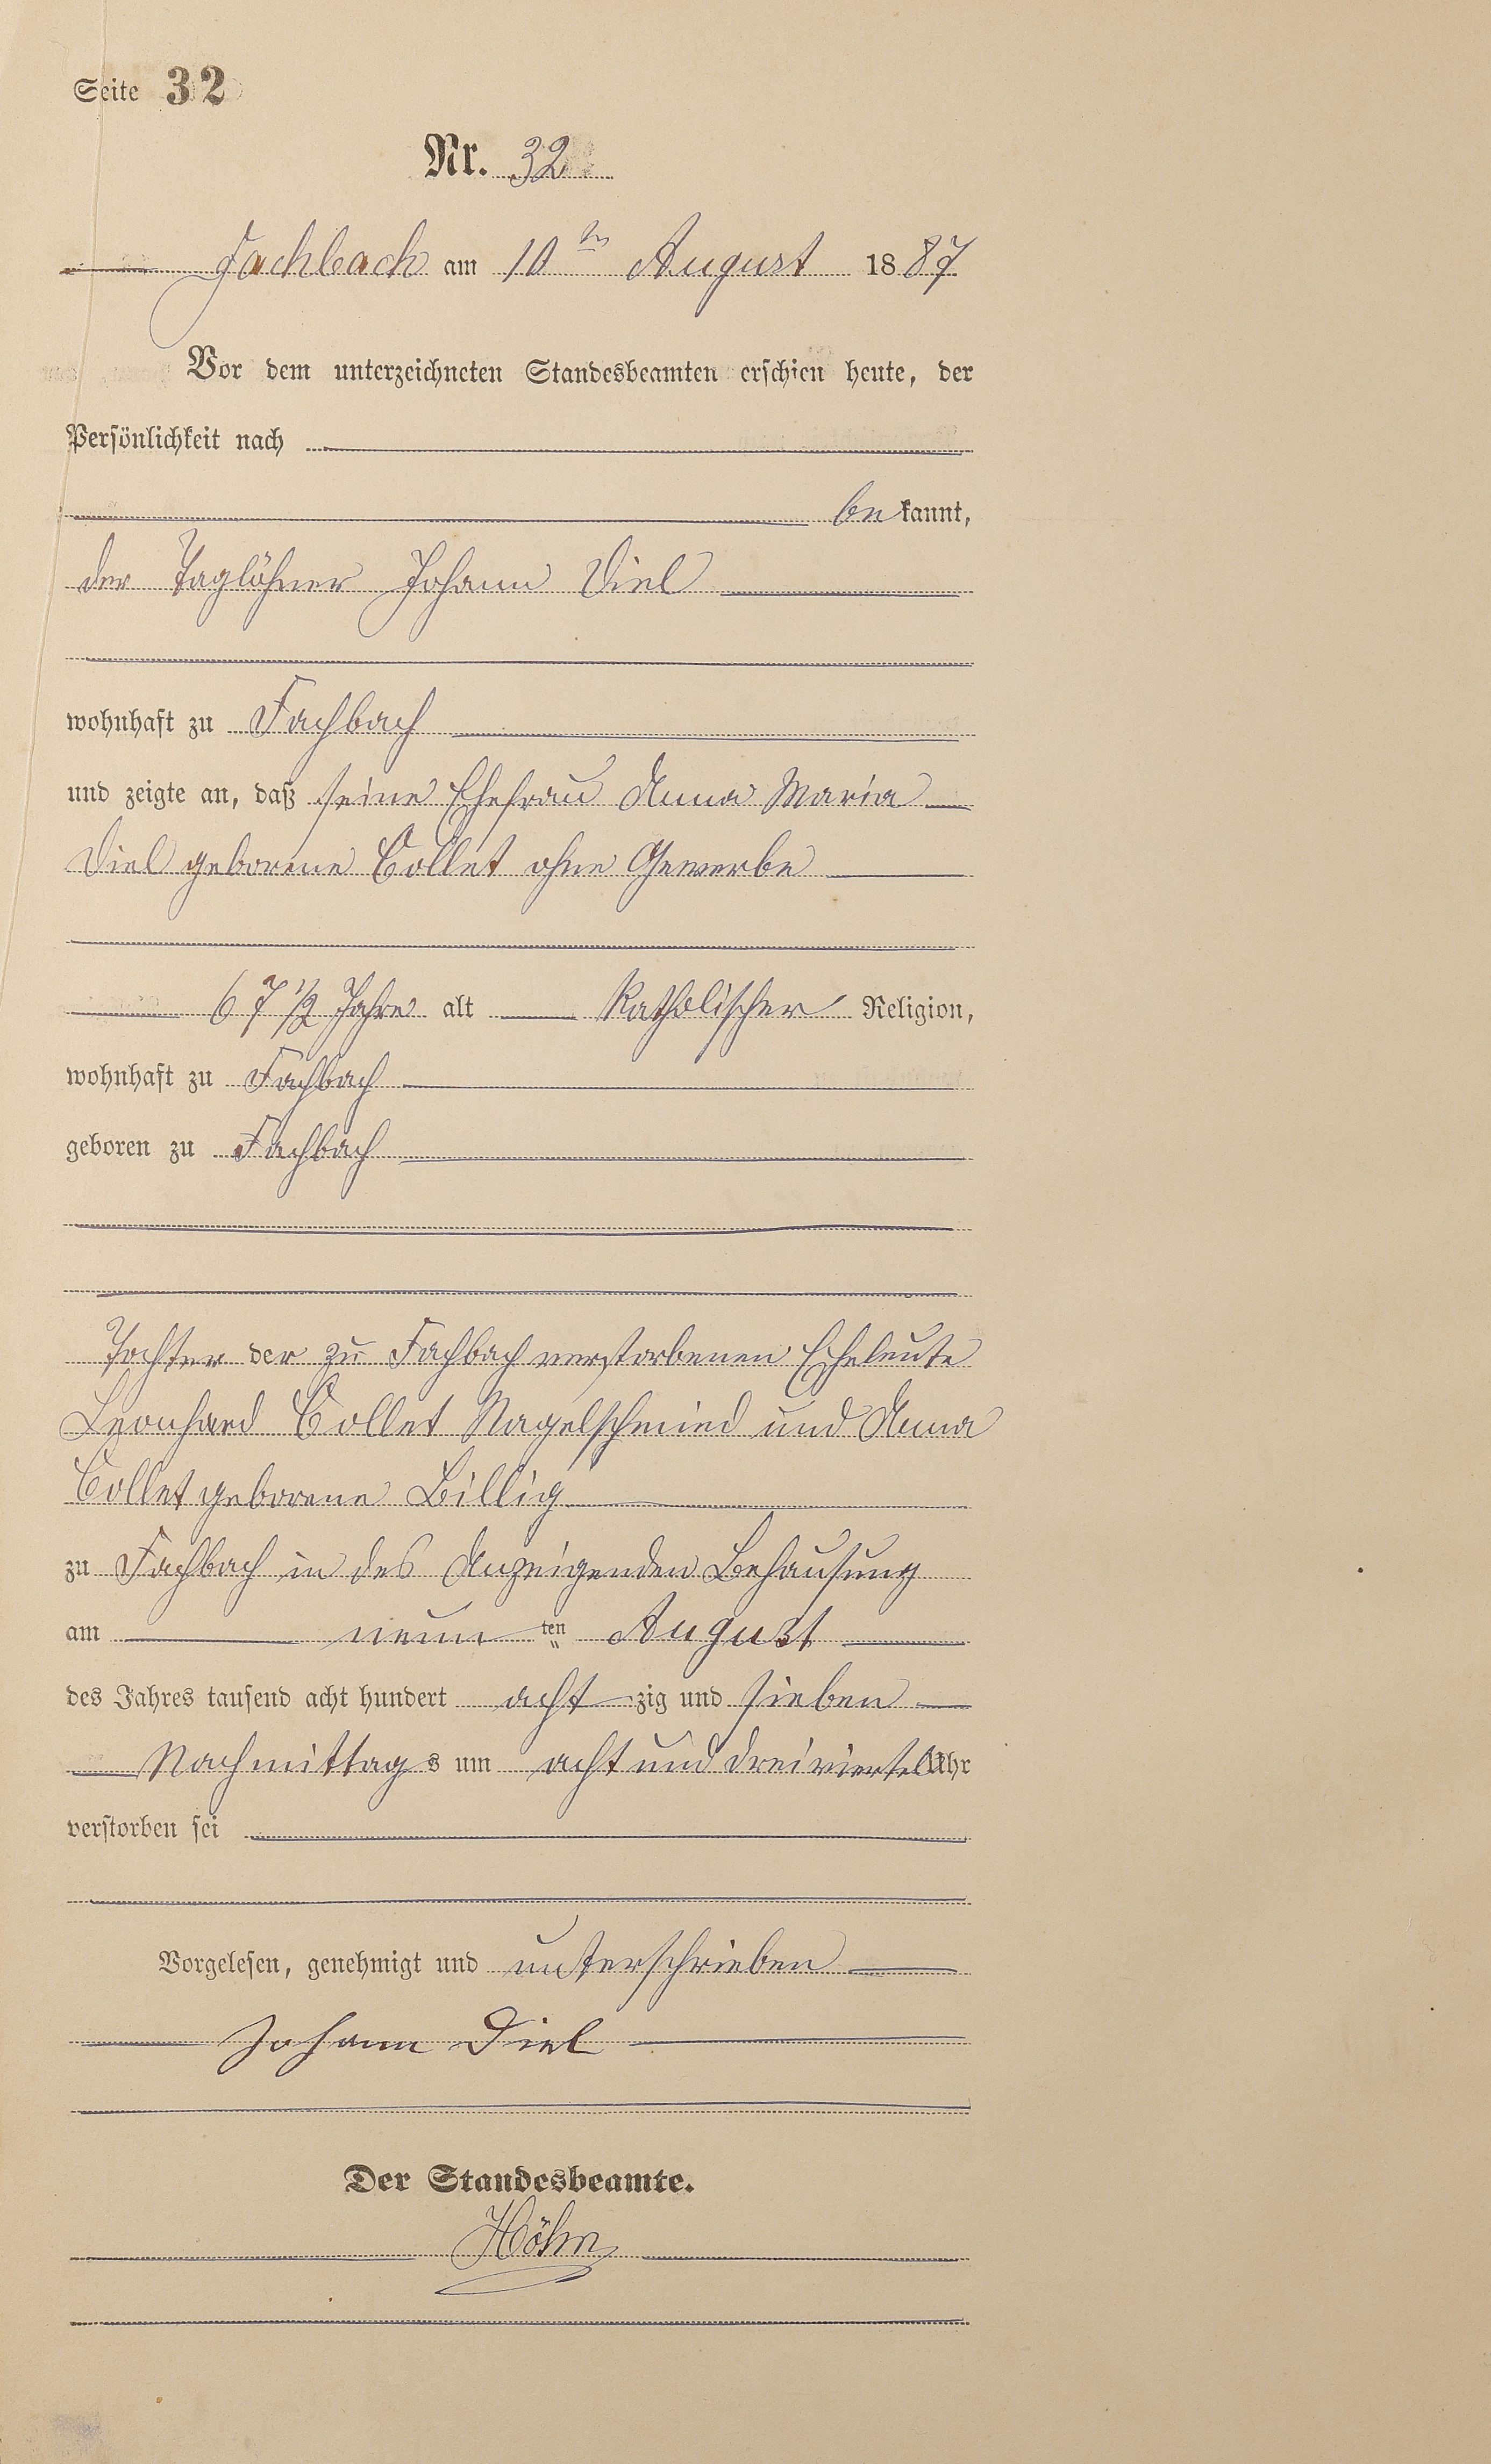 Seite 32
Nr. 32
Fachbach am 10ten August 1887
Vor dem unterzeichneten Standesbeamten erschien heute, der
Persönlichkeit nach
bekannt,
der Taglöhner Johann Diel
wohnhaft zu Fachbach
und zeigte an, daß seine Ehefrau Anna Maria
Diel geborene Collet ohne Gewerbe
67 1/2 Jahre alt Katholischer Religion,
wohnhaft zu Fachbach
geboren zu Fachbach
Tochter der zu Fachbach verstorbenen Eheleute
Leonhard Collet Nagelschmied und Anna
Collet geborene Billig
zu Fachbach in des Anzeigenden Behausung
am neun ten August
des Jahres tausend acht hundert acht zig und sieben
Nachmittags um acht und dreiviertel Uhr
verstorben sei
Vorgelesen, genehmigt und unterschrieben
Johann Diel
Der Standesbeamte.
Höhn